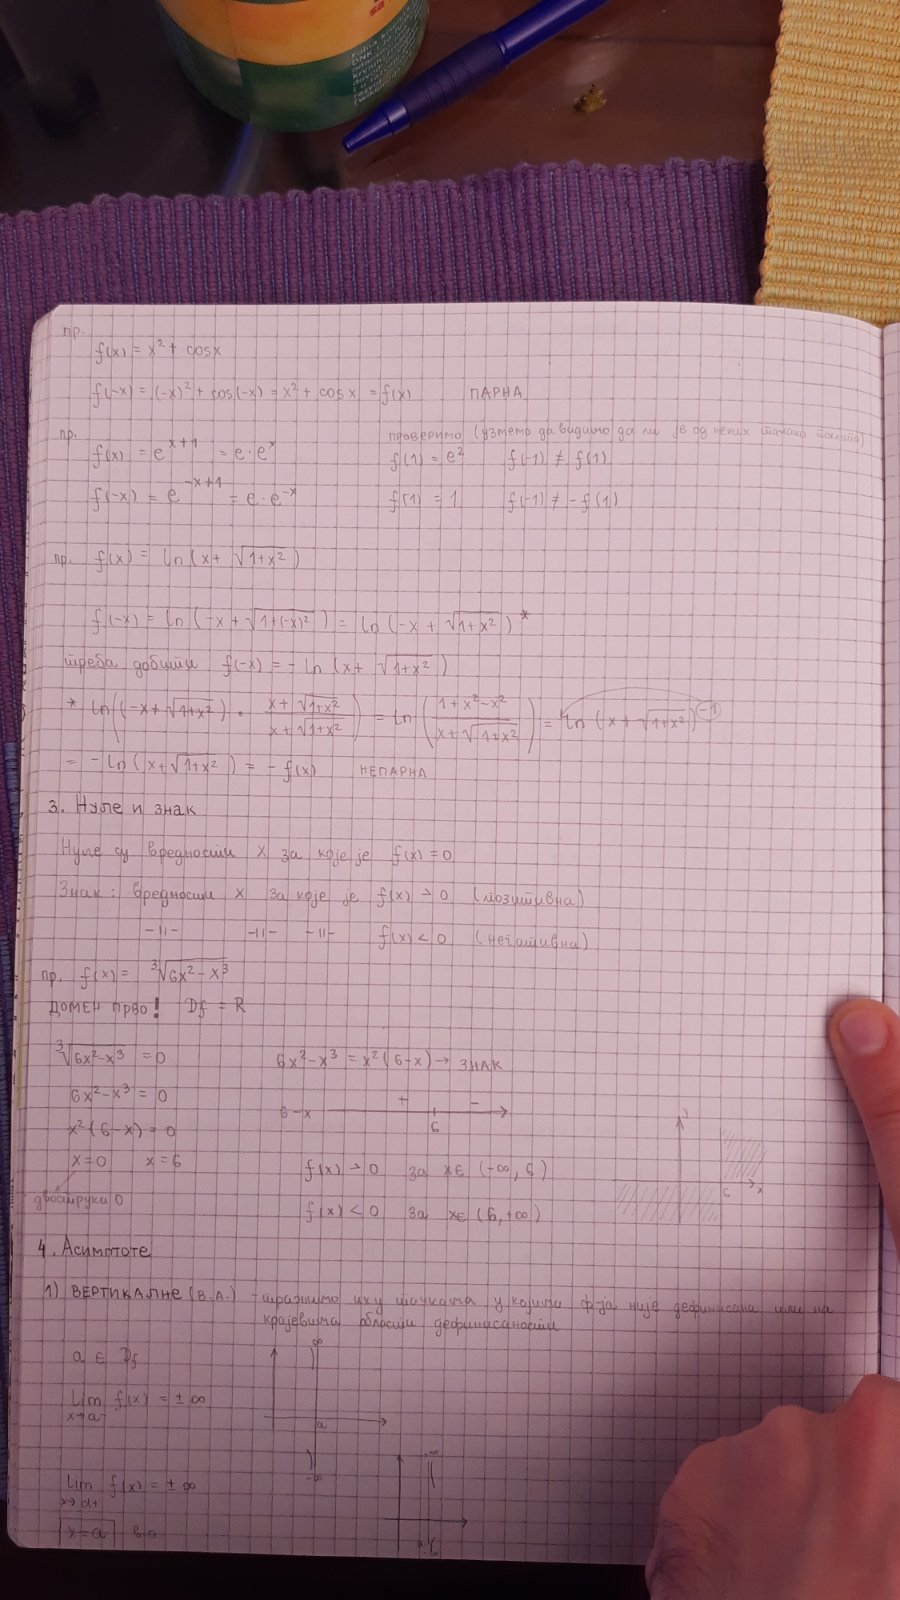 пр.
f(x) = x² + cosx
f(-x) = (-x)² + cos(-x) = x² + cos x = f(x) ПАРНА
пр.
проверимо (узмемо да видимо да ли је од неких тачака
f(x) = e^{x+1} = e·e^x f(1) = e² f(-1) ≠ f(1)
f(-x) = e^{-x+1} = e·e^{-x} f(1) = 1 f(-1) ≠ -f(1)
пр. f(x) = ln(x+√(1+x²))
f(-x) = ln(-x+√(1+(-x)²)) = ln(-x+√(1+x²)) *
треба добити f(-x) = -ln(x+√(1+x²))
* ln((-x+√(1+x²))·(x+√(1+x²))/(x+√(1+x²))) = ln((1+x²-x²)/(x+√(1+x²))) = ln(x+√(1+x²))^{-1}
= -ln(x+√(1+x²)) = -f(x) НЕПАРНА
3. Нуле и знак
Нуле су вредности x за које је f(x) = 0
Знак: вредности x за које је f(x) > 0 (позитивна)
-11- -11- -11- f(x) < 0 (негативна)
пр. f(x) = ³√(6x²-x³)
ДОМЕН ПРВО! Df = R
³√(6x²-x³) = 0 6x²-x³ = x²(6-x) → ЗНАК
6x²-x³ = 0
+ -
6-x
6
x²(6-x) = 0
x=0 x=6
y
6 x
f(x) > 0 за x∈(-∞, 6)
двострука 0
f(x) < 0 за x∈(6, +∞)
4. Асимптоте
1) ВЕРТИКАЛНЕ (В.А.) - тражимо их у тачкама у којима ф-ја није дефинисана или на
крајевима области дефинисаности
∞
a ∈ Df
lim f(x) = ±∞
x→a⁻
a
-∞
lim f(x) = ±∞
x→a+
x=a